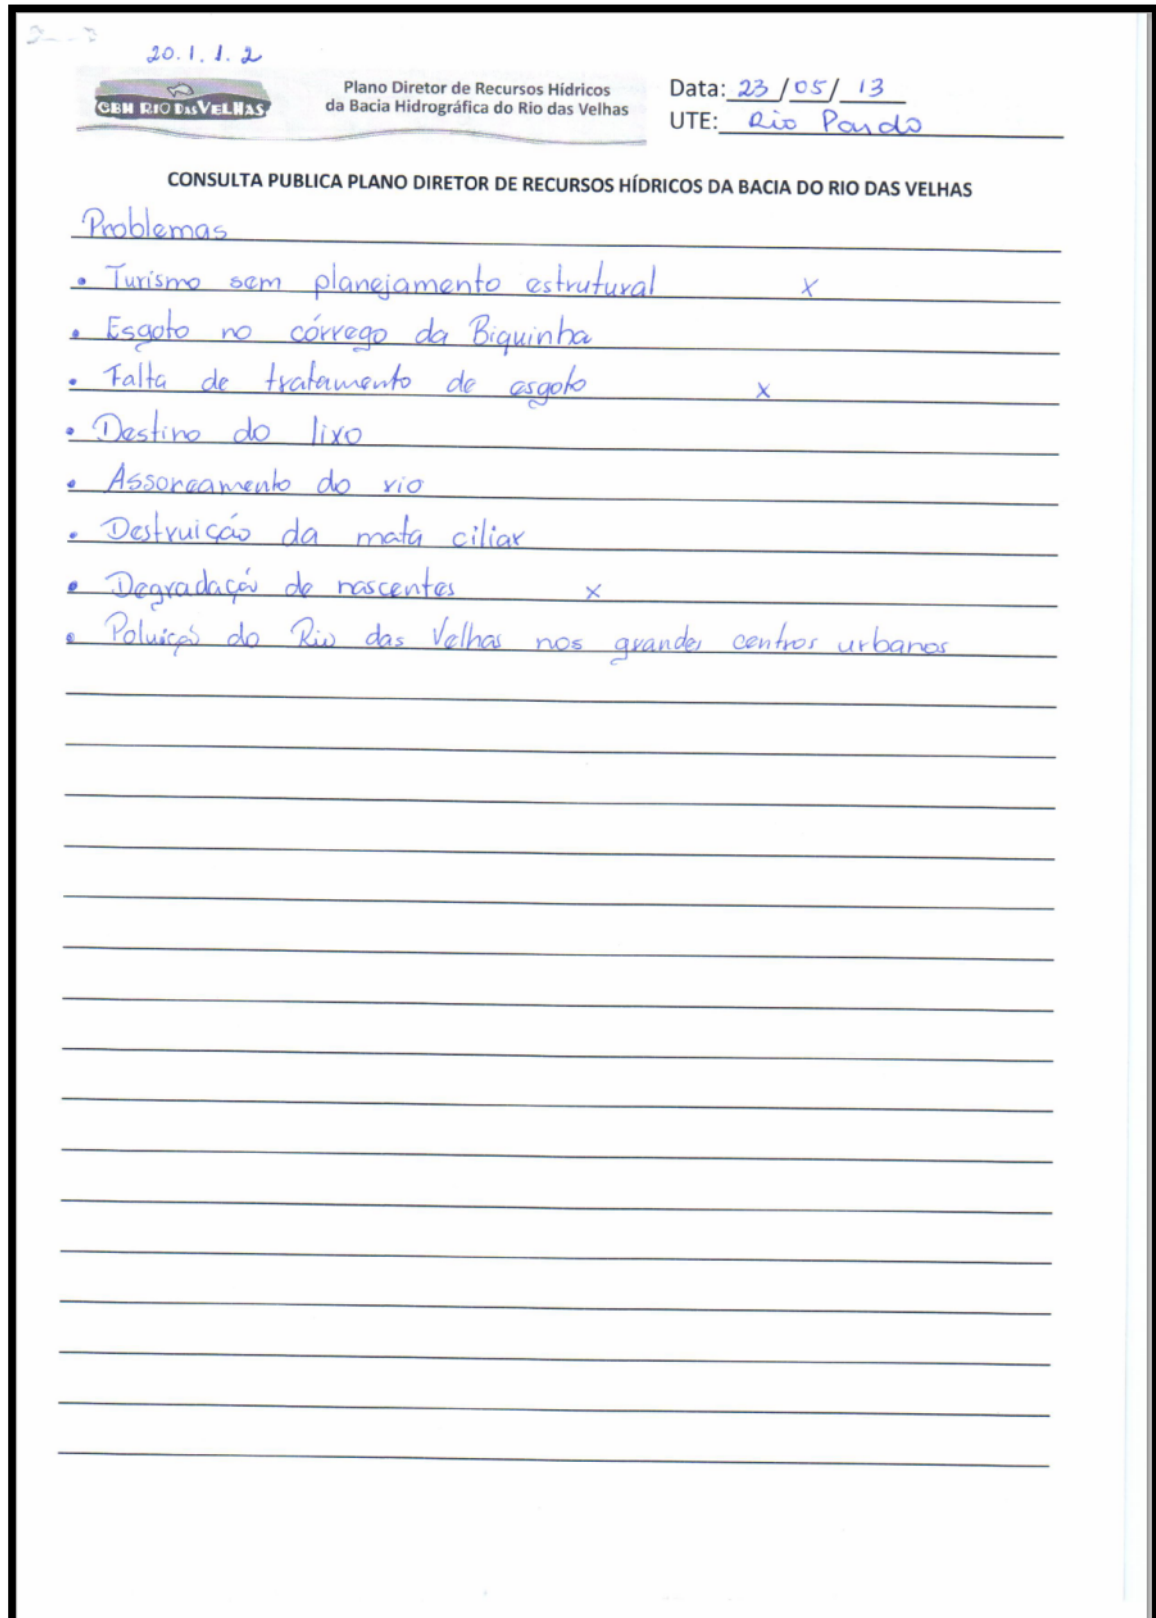 20.1.1.2
CBH RIO DAS VELHAS
Plano Diretor de Recursos Hídricos
da Bacia Hidrográfica do Rio das Velhas
Data: 23/05/13
UTE: Rio Pardo
CONSULTA PUBLICA PLANO DIRETOR DE RECURSOS HÍDRICOS DA BACIA DO RIO DAS VELHAS
Problemas
• Turismo sem planejamento estrutural x
• Esgoto no córrego da Biquinha
• Falta de tratamento de esgoto x
• Destino do lixo
• Assoreamento do rio
• Destruição da mata ciliar
• Degradação de nascentes x
• Poluição do Rio das Velhas nos grandes centros urbanos